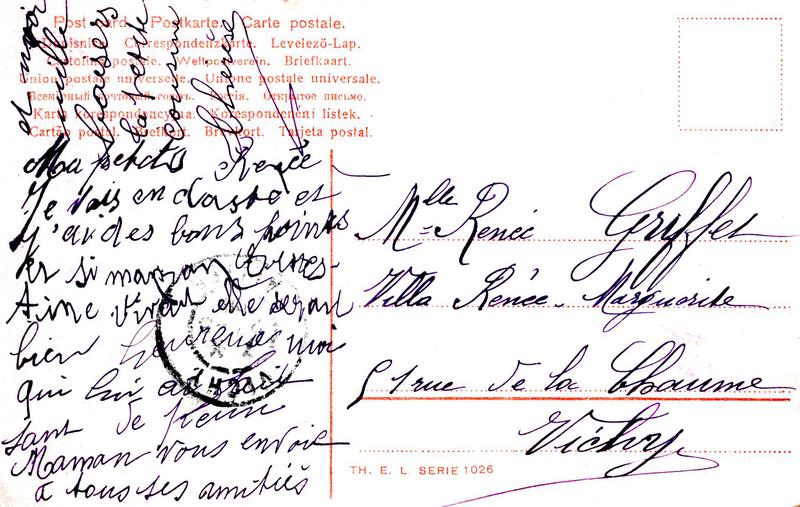 Post card. Postkarte. Carte postale.
Dopisnice. Correspondenzkarte. Levelező-Lap.
Cartolina postale. Weltpostverein. Briefkaart.
Union postale universelle. Unione postale universale.
Всемірный почтовый союзъ. Россія. Открытое письмо.
Karta korespondencyjna. Korespondenční lístek.
Cartão postal. Brefkort. Brevkort. Tarjeta postal.
Ma petite Renée
Je vais en classe et
j'ai des bons points
et si maman Ernes-
tine vivait elle serait
bien heureuse moi
qui lui ai fait
tant de peine
Maman vous envoie
à tous ses amitiés
et moi
mille
baisers
ta petite
cousine
Thérèse
Mlle Renée Griffet
Villa Renée-Marguerite
51 rue de la Chaume
Vichy
TH. E. L. SERIE 1026